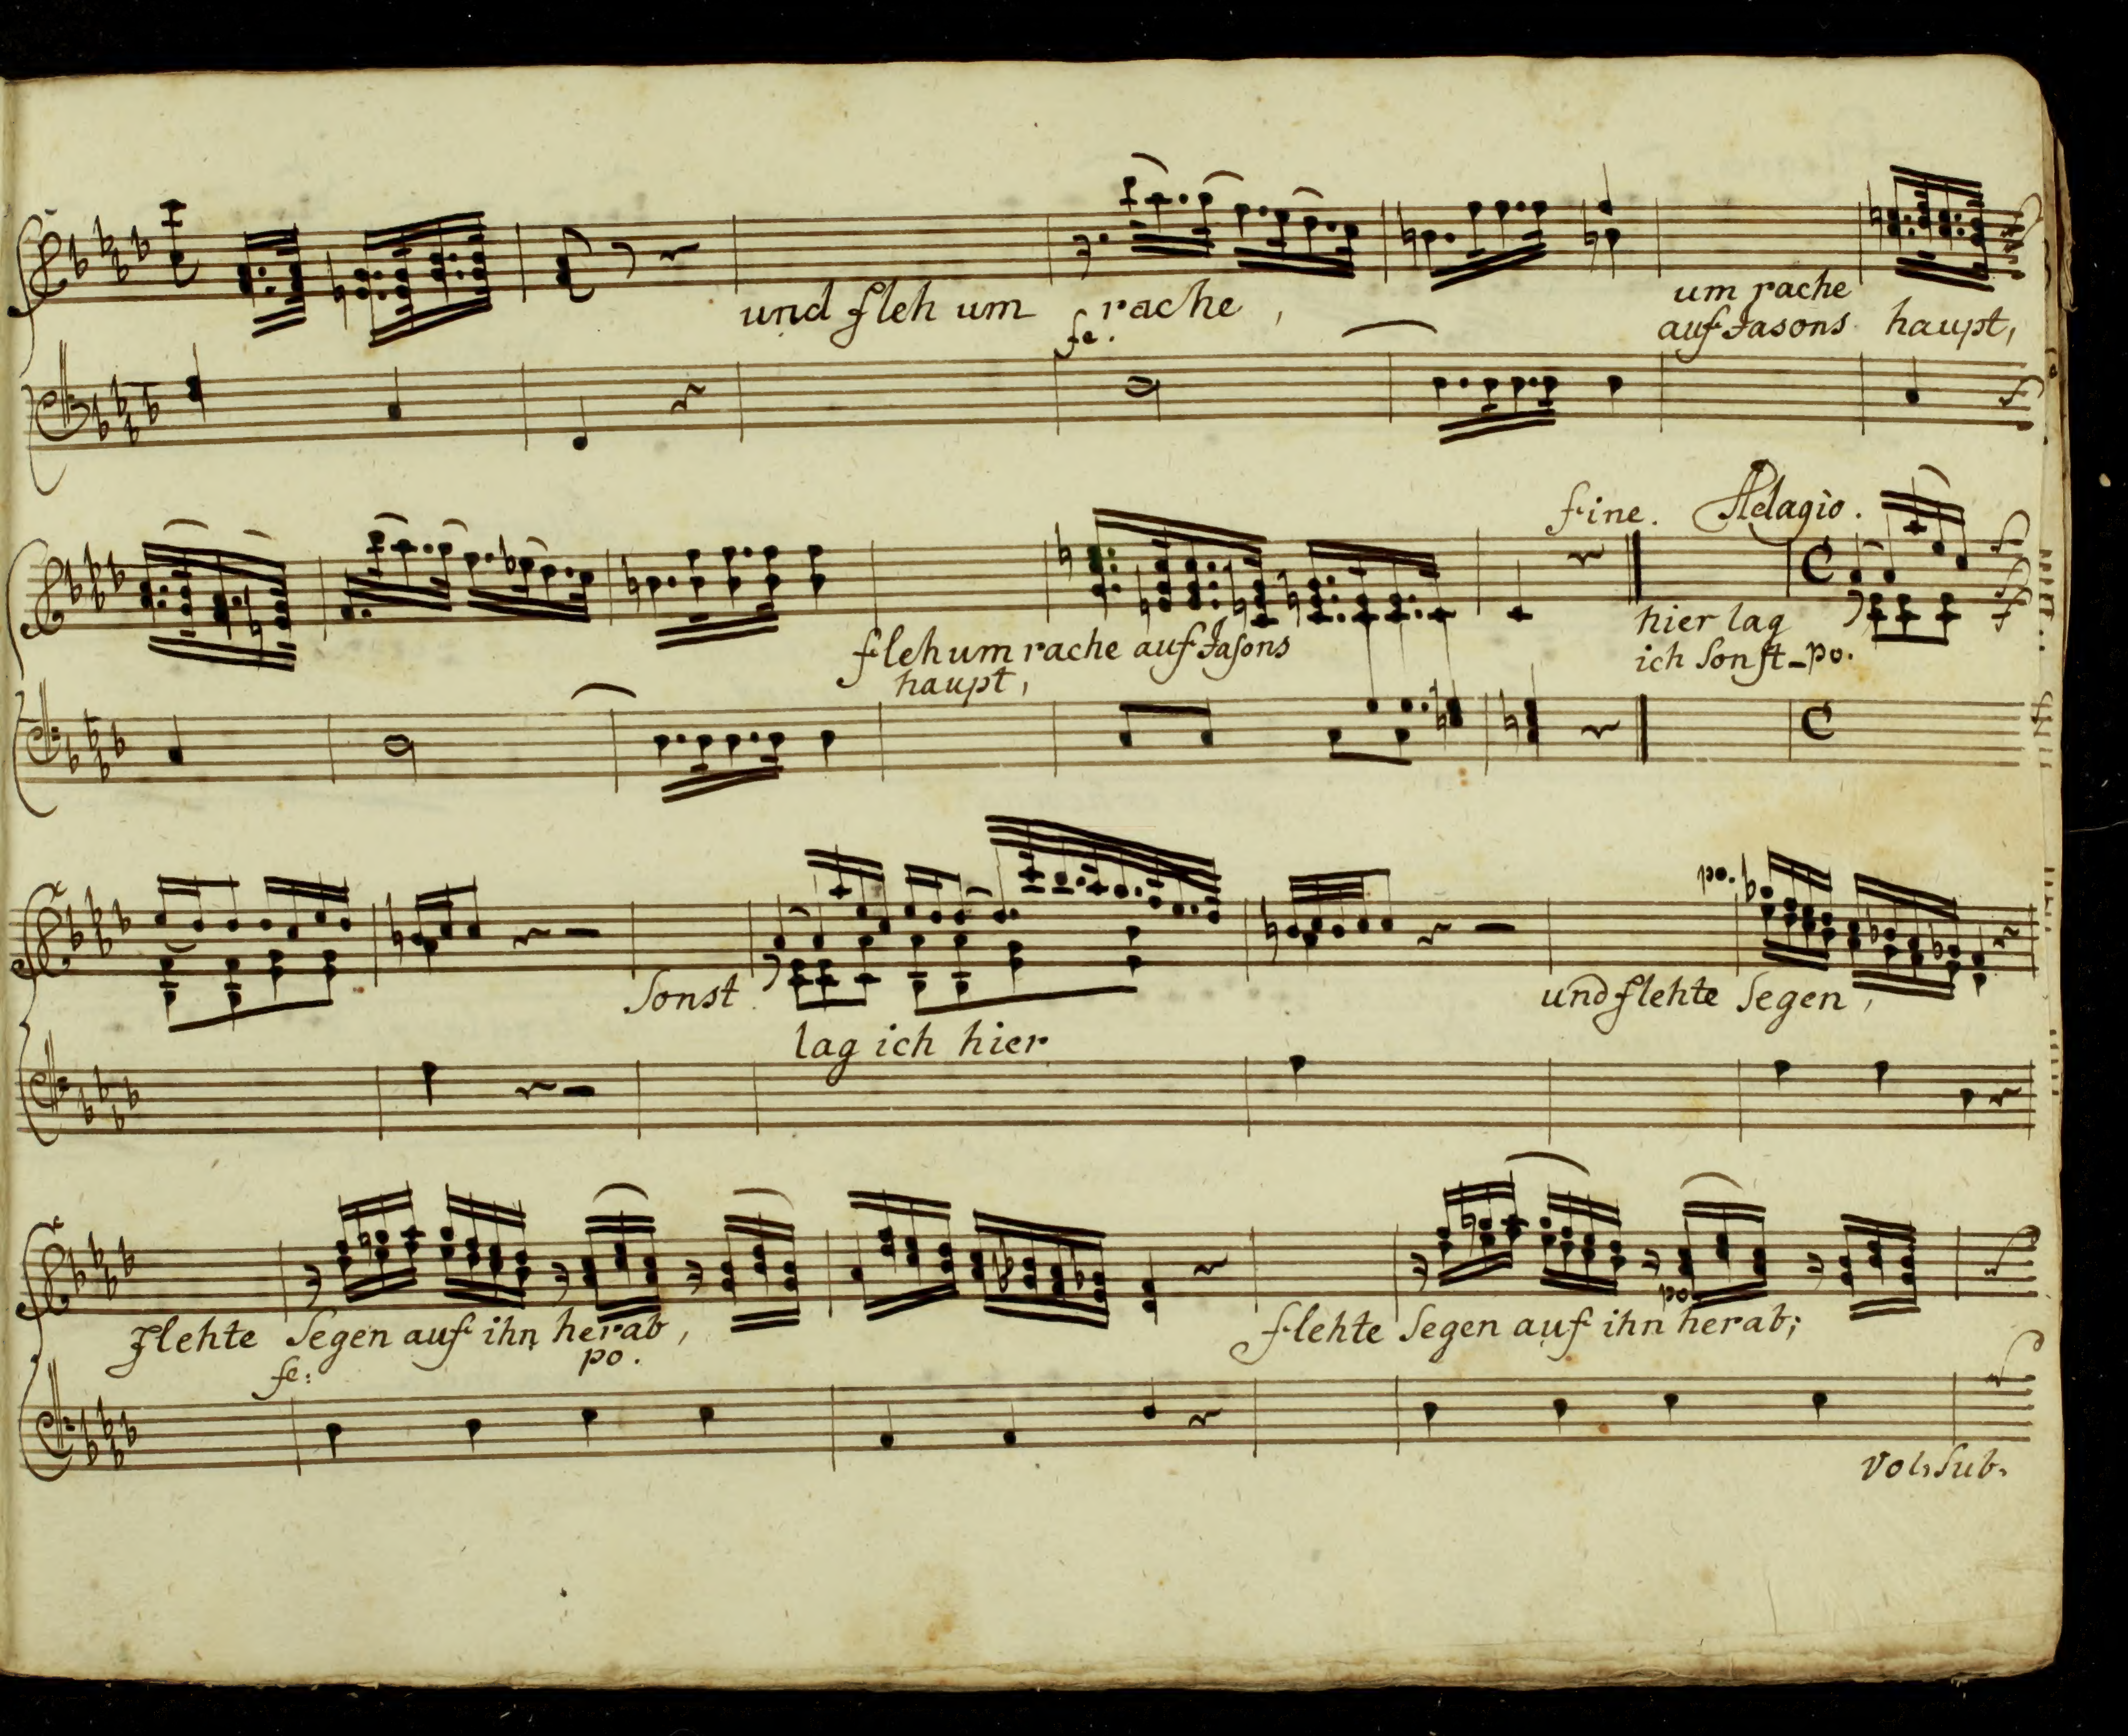 und fleh um rache,
fe.
um rache
auf Jasons haupt,
fine. Adagio.
fleh um rache auf Jasons
haupt,
hier lag
ich sonst - po.
po.
Sonst
lag ich hier
und flehte Segen,
flehte Segen auf ihn herab,
fe: po.
po
flehte Segen auf ihn herab;
Vol: Sub.